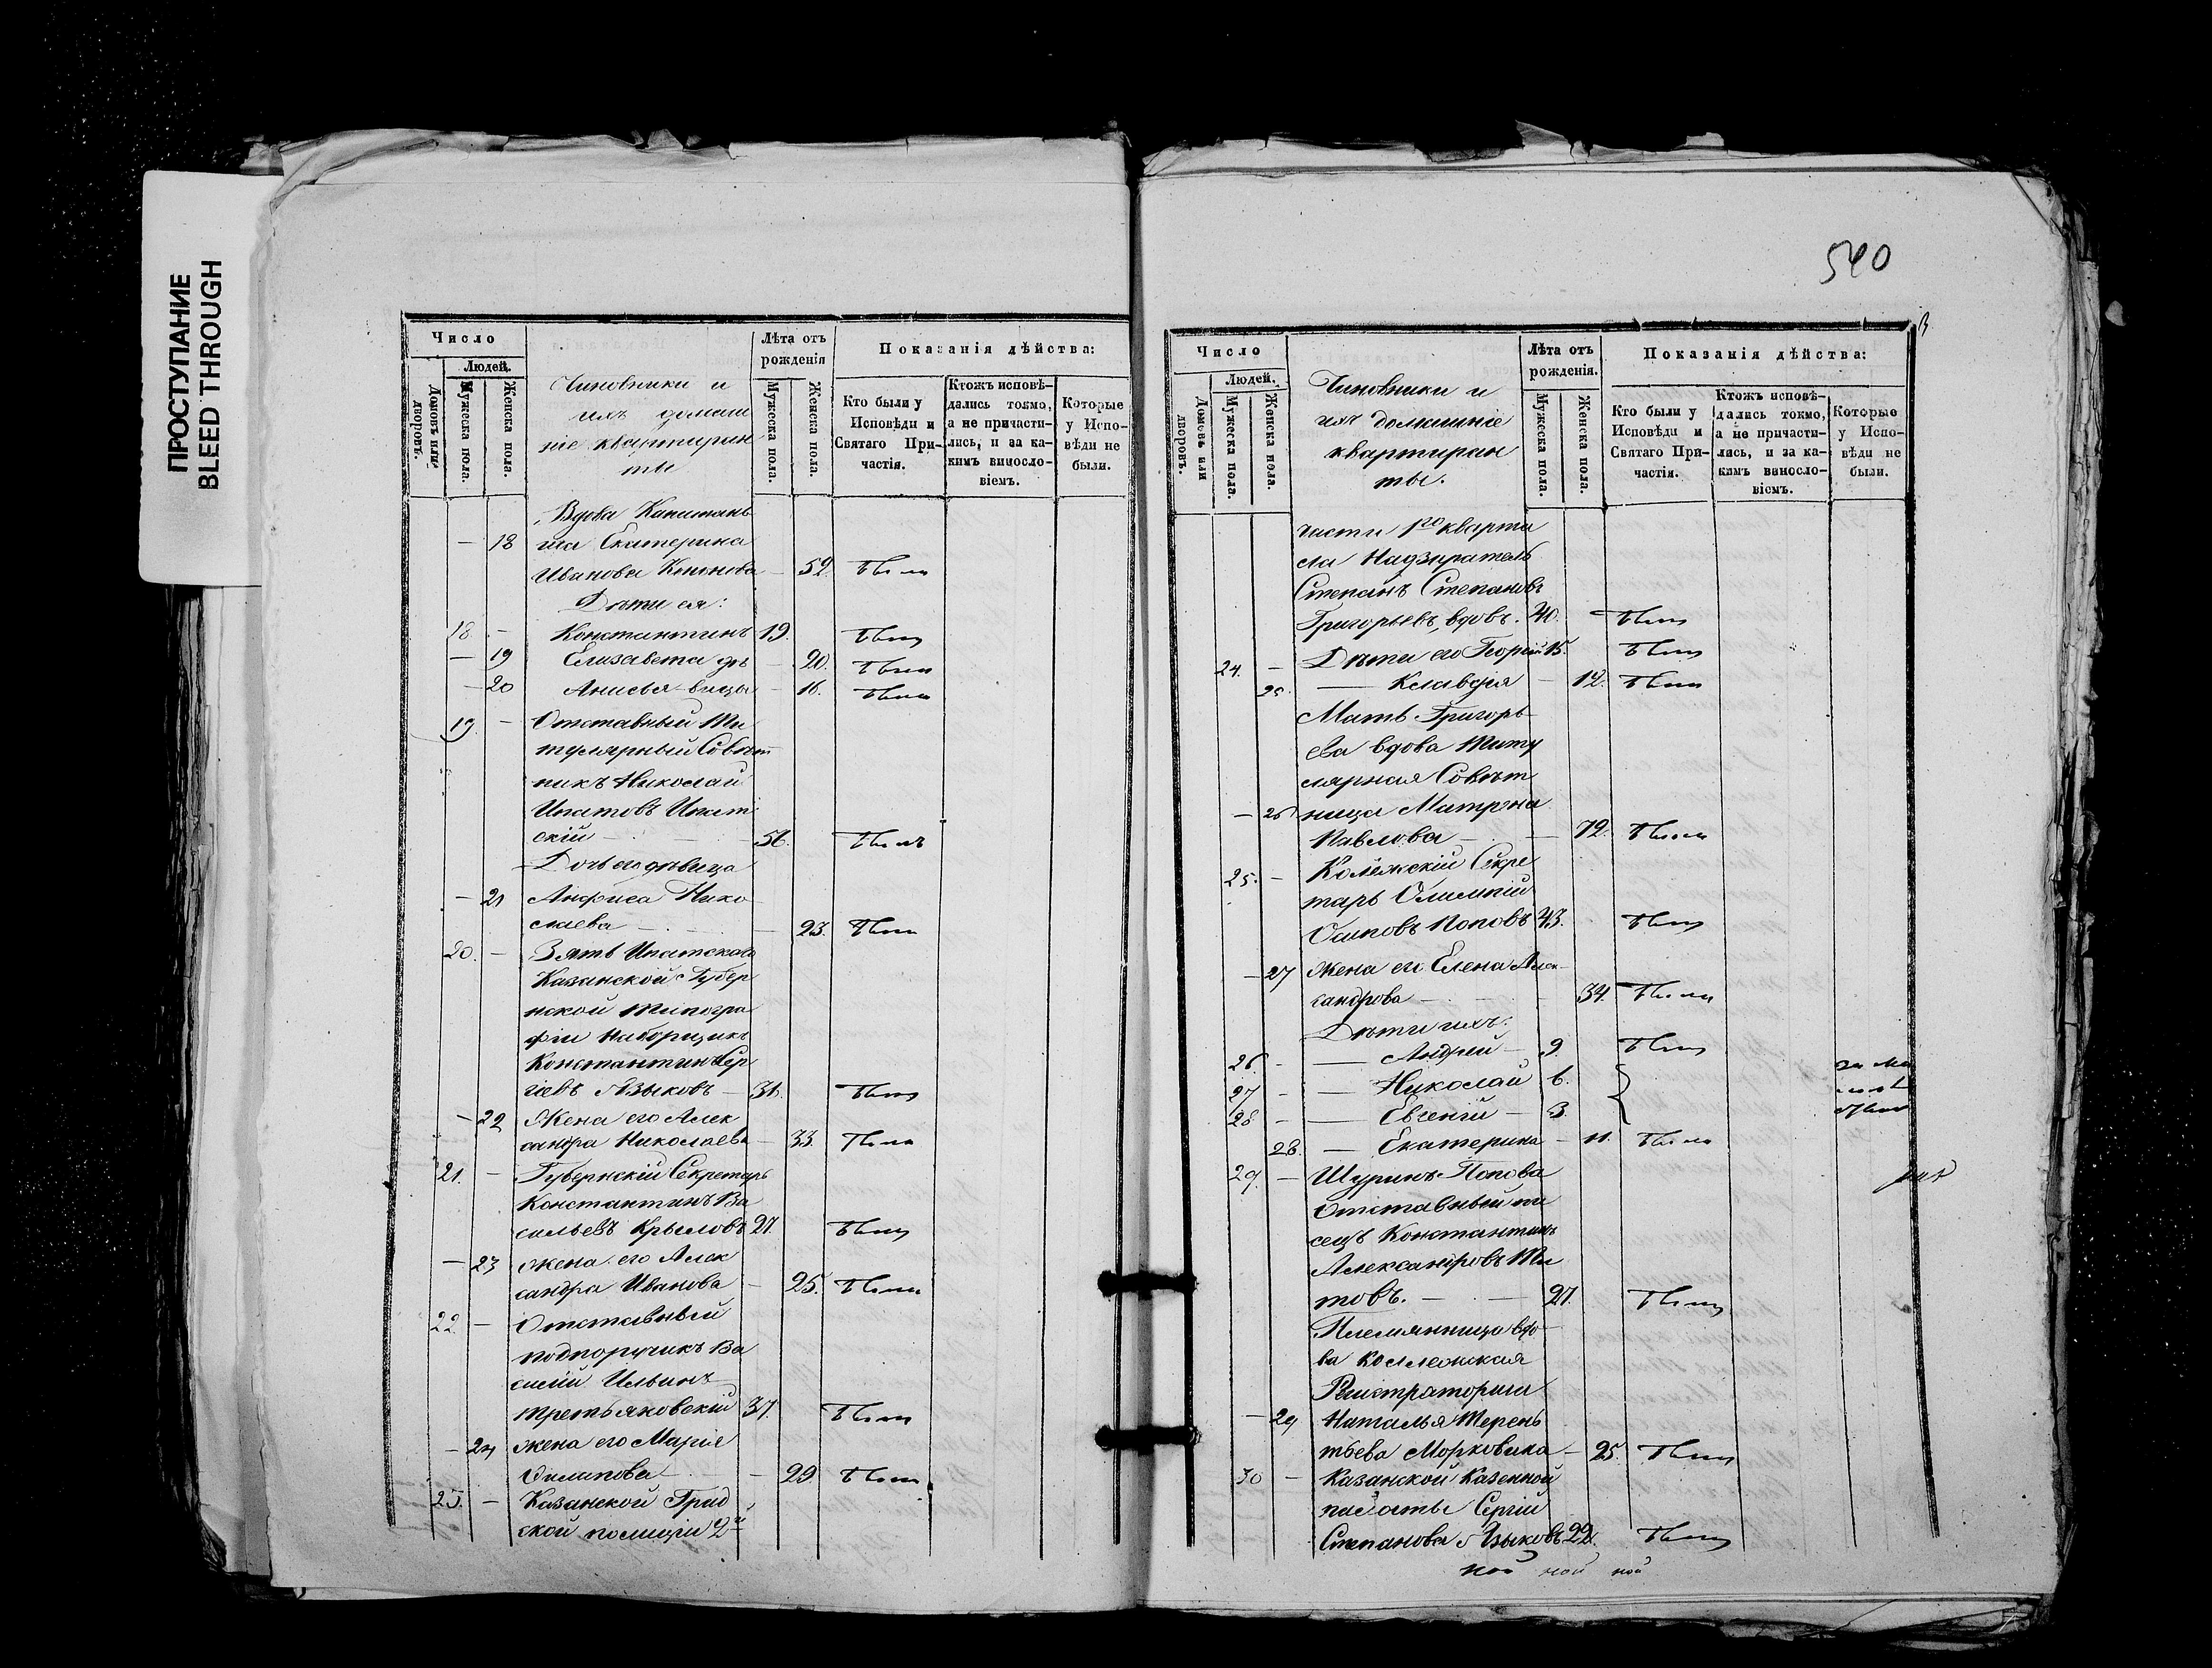 ПРОСТУПАНИЕ
BLEED THROUGH
540
Число
Людей.
Домовъ или дворовъ.
Мужеска пола.
Женска пола.
Чиновники и
ихъ домаш
ніе квартиран
ты
Лѣта отъ
рожденія
Мужеска пола.
Женска пола.
Показанія дѣйства:
Кто были у
Исповѣди и
Святаго При-
частія.
Ктожъ исповѣ-
дались токмо,
а не причасти-
лись, и за ка-
кимъ винosло-
віемъ.
Которые
у Испо-
вѣди не
были.
Вдова Капитан
— 18 ша Екатерина
Иванова — 52.
Дѣти ея:
18 — Константинъ 19.
— 19 Елизавета дѣ — 20.
— 20 Анисья вицы — 16.
19. — Отставный Ти
тулярный Совѣт
никъ Николай
Ипатовъ Ипат
скій — 56.
Дочь его дѣвица
— 21 Анфиса Нико
лаева — 23.
20. — Зять Ипатскаго
Казанской Губер
нской Типогра
фіи Наборщикъ
Константинъ Сер
гіевъ Языковъ — 36.
— 22 Жена его Алек
сандра Николаева — 33.
21. — Губернскій Секретарь
Константинъ Ва
сильевъ Крыловъ 27.
— 23 жена его Алек
сандра Иванова — 25.
22. — Отставный
подпоручикъ Ва
силій Ильинъ
Третьяковскій 37.
— 24 жена его Марія
Филипова — 29.
23. — Казанской Град
ской полиціи 2й
Число
Людей.
Домовъ или дворовъ.
Мужеска пола.
Женска пола.
Чиновники и
ихъ домашніе
квартиран
ты.
Лѣта отъ
рожденія.
Мужеска пола.
Женска пола.
Показанія дѣйства:
Кто были у
Исповѣди и
Святаго При-
частія.
Ктожъ исповѣ-
дались токмо,
а не причасти-
лись, и за ка-
кимъ виносло-
віемъ.
Которые
у Испо-
вѣди не
были.
части 1го кварта
ла Надзиратель
Степанъ Степановъ
Григорьевъ, вдовъ. 40.
24. — Дѣти его Георгій 15.
25. — Клавдія — 12.
Мать Григорь
ева вдова Титу
лярная Совѣт
— 26 ница Матрона
Павлова — 72.
25. — Колежскій Секре
тарь Олимпій
Осиповъ Поповъ 43.
— 27 жена его Елена Алек
сандрова — 34.
Дѣти ихъ:
26. — Андрей — 9.
27 — Николай 6.
28 — Евгеній — 3.
28. — Екатерина — 11.
29. — Шуринъ Попова
отставный пи
сецъ Константинъ
Александровъ Ти
товъ. — 27.
Племянница вдо
ва коллежская
Регистраторша
— 29 Наталья Терень
тьева Морковина — 25.
30 — Казанской Казенной
палаты Сергій
Степановъ Языковъ 22.
ной ной